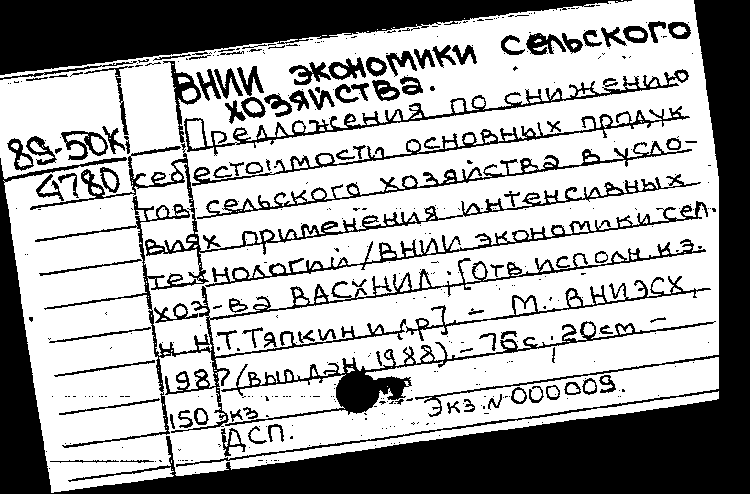 ВНИИ экономики сельского
хозяйства.
89-50К
4780
Предложения по снижению
себестоимости основных продук
тов сельского хозяйства в усло-
виях применения интенсивных
технологий / ВНИИ экономики сел.
хоз-ва ВАСХНИЛ; [Отв. исполн. к.э.
н. Н.Т. Тяпкин и др]. - М.: ВНИЭСХ,
1987 (вып. дан. 1988). - 76 с.; 20 см -
150 экз. Экз. N 000009.
ДСП.